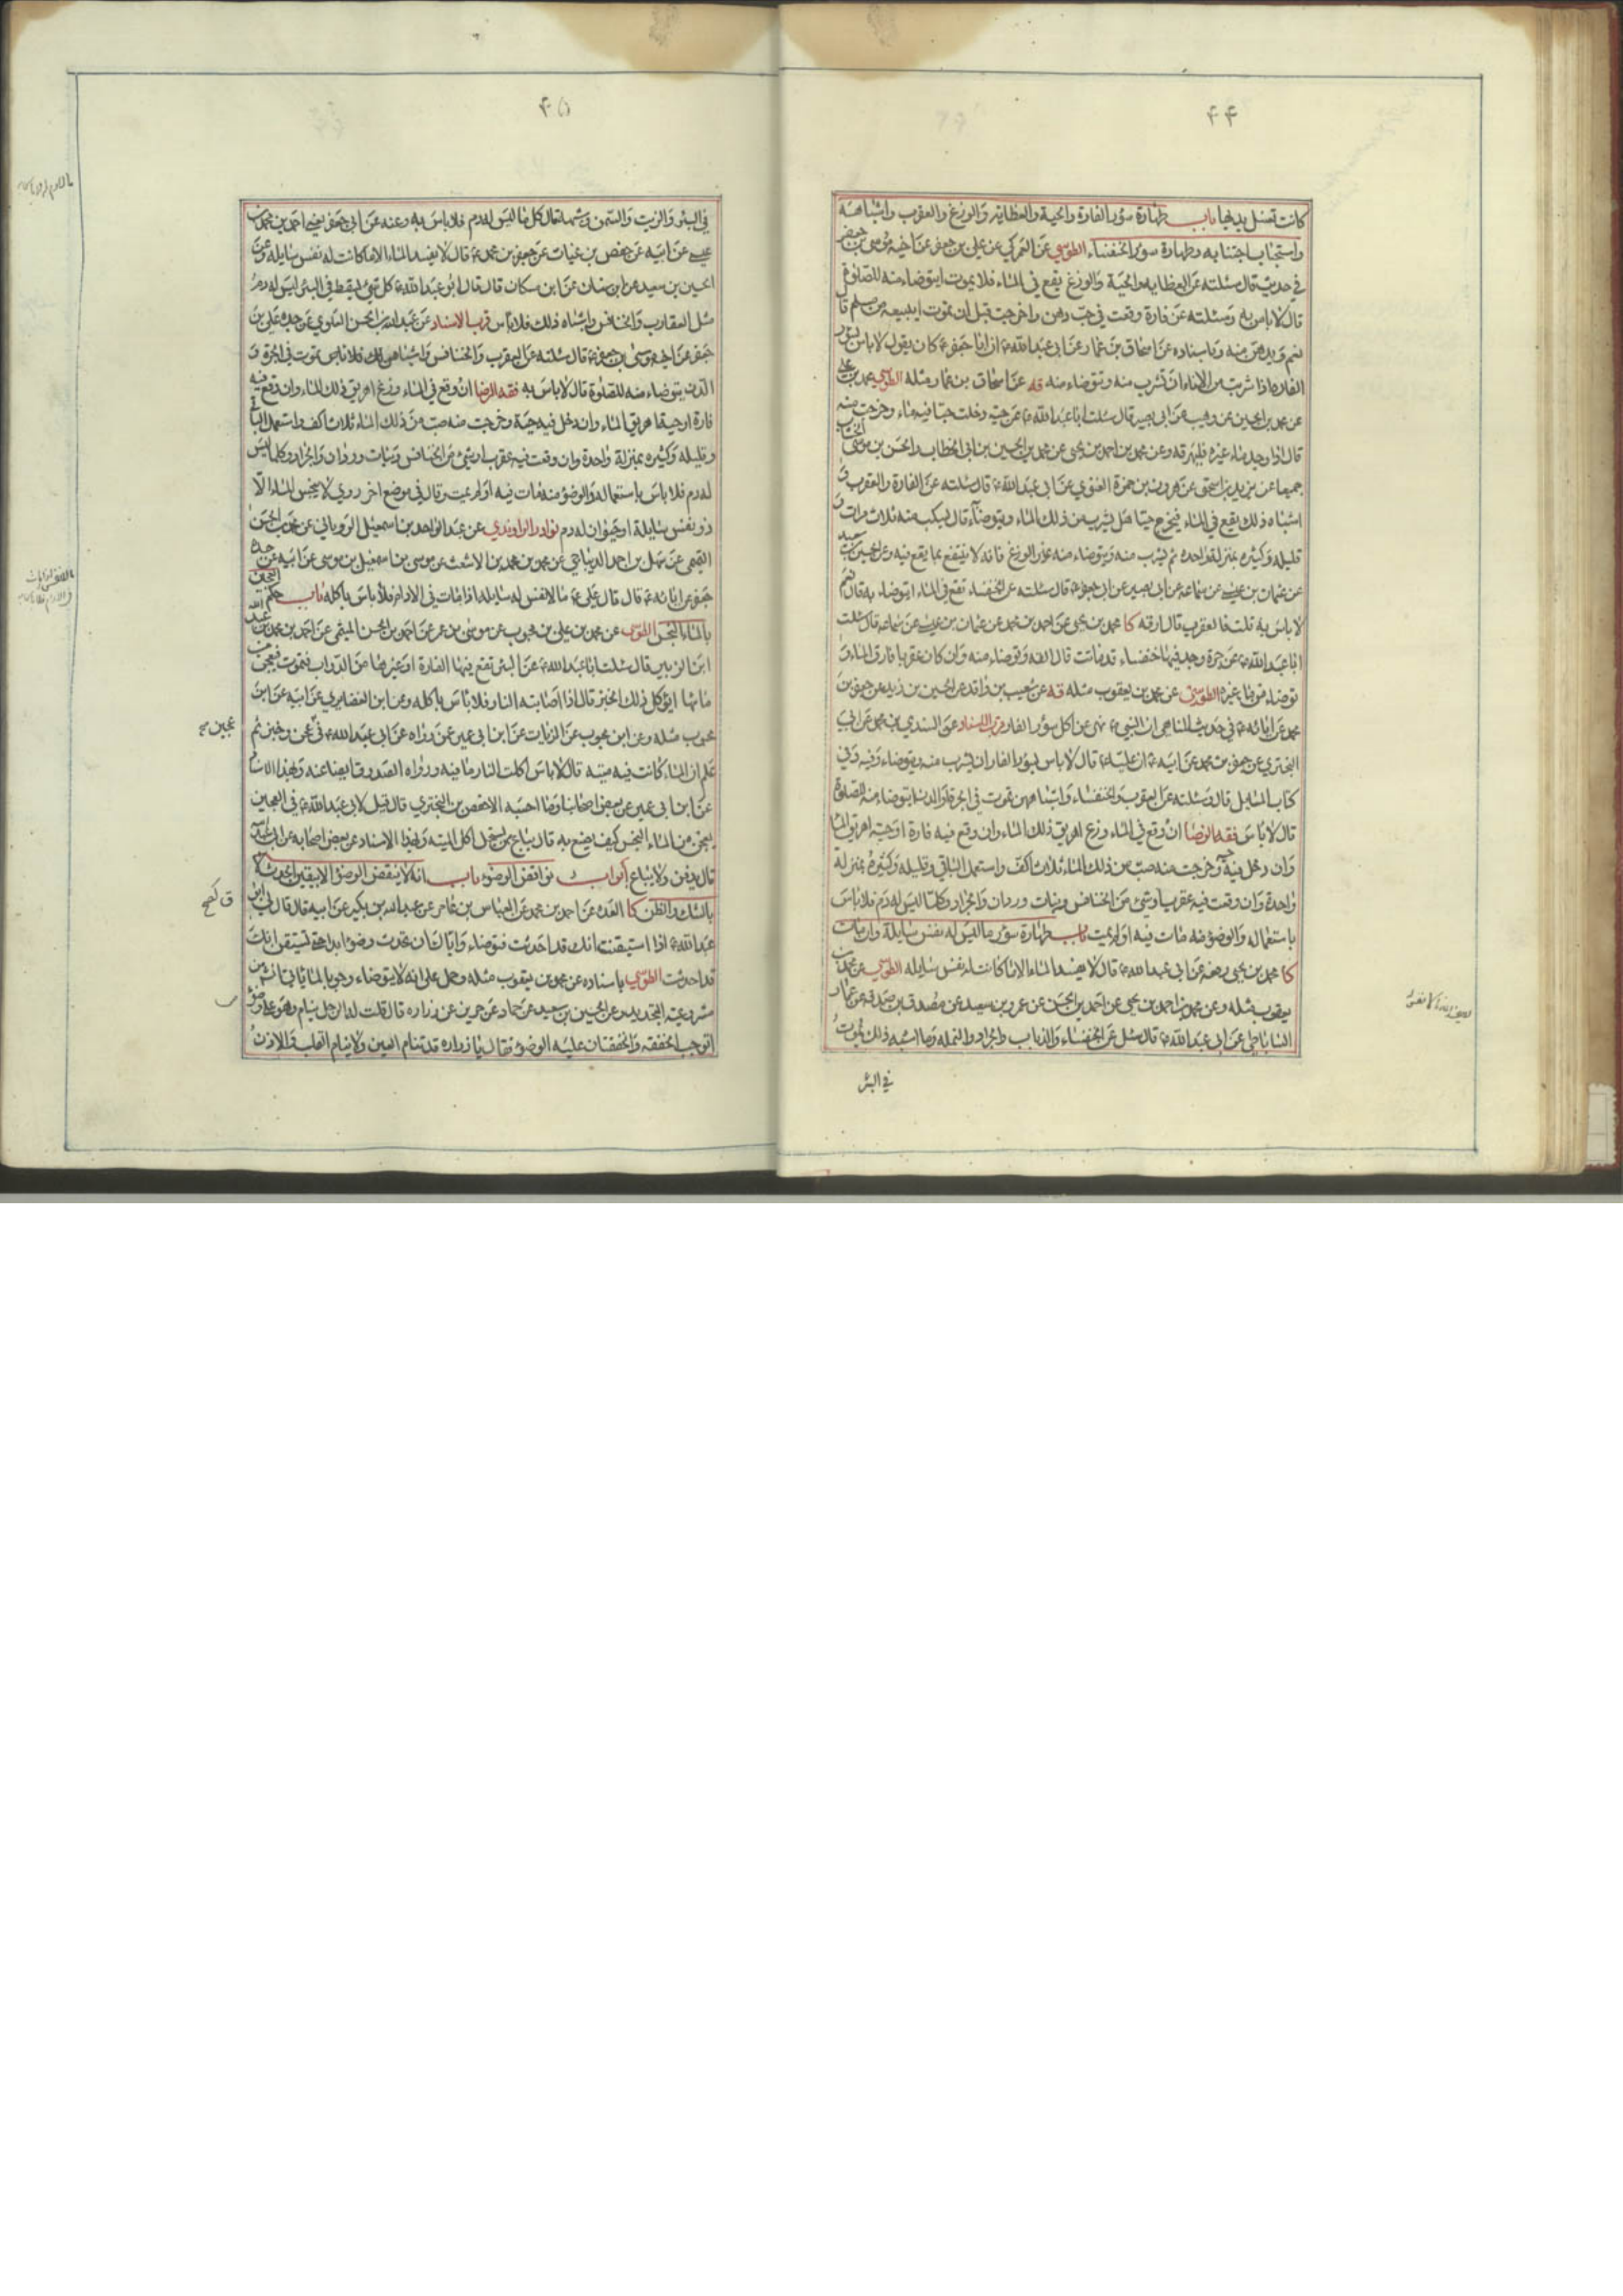 ۴۴
كانت تغسل يديها باب طهارة سؤر الفارة والحية والعظاية والوزغ والعقرب واشباهه
واستحباب اجتنابه وطهارة سؤر الخنفساء الطوسي عن العمركي عن علي بن جعفر عن اخيه موسى بن جعفر
في حديث قال سئلته عن العظاية والحية والوزغ يقع في الماء فلا يموت ايتوضاء منه للصلوة
قال لا باس به وسئلته عن فارة وقعت في حب دهن واخرجت قبل ان تموت ايبيعه من مسلم قا
نعم ويدهن منه وباسناده عن اسحاق بن عمار عن ابي عبد الله ع ان ابا جعفر ع كان يقول لا باس بسؤر
الفاره اذا شربت من الاناء ان تشرب منه وتتوضاء منه قه عن اسحاق بن عمار مثله الطوسي محمد بن علي
عن محمد بن الحسين عن وهيب عن ابي بصير قال سئلت ابا عبد الله ع عن حية دخلت حبا فيه ماء وخرجت منه
قال اذا وجد ماء غيره فليهرقه وعن محمد بن احمد بن يحيى عن محمد بن الحسين بن ابي الخطاب والحسن بن موسى الخشاب
جميعا عن يزيد بن اسحق عن هرون بن حمزة الغنوي عن ابي عبد الله ع قال سئلته عن الفارة والعقرب و
اشباه ذلك يقع في الماء فيخرج حيا هل يشرب من ذلك الماء ويتوضأ قال يسكب منه ثلاث مرات و
قليله وكثيره بمنزلة واحده ثم يشرب منه ويتوضاء منه غير الوزغ فانه لا ينتفع بما يقع فيه وعن الحسين بن سعيد
عن عثمان بن عيسى عن سماعه عن ابي بصير عن ابي جعفر ع قال سئلته عن الخنفساء تقع في الماء ايتوضاء به قال نعم
لا باس به قلت فالعقرب قال ارقه كا محمد بن يحيى عن احمد بن محمد عن عثمان بن عيسى عن سماعه قال سئلت
ابا عبد الله ع عن جرة وجد فيها خنفساء قد ماتت قال القه وتوضاء منه وان كان عقربا فارق الماء و
توضاء من ماء غيره الطوسي عن محمد بن يعقوب مثله قه عن شعيب بن واقد عن الحسين بن زيد عن جعفر بن
محمد عن ابائه ع في حديث المناهي ان النبي ص نهى عن اكل سؤر الفار قرب الاسناد عن السندي بن محمد عن ابي
البختري عن جعفر بن محمد عن ابيه ع ان عليا ع قال لا باس بسؤر الفار ان يشرب منه ويتوضاء وفيه وفي
كتاب المسايل قال وسئلته عن العقرب والخنفساء واشباههن تموت في الجرة او الدن ايتوضاء منه للصلوة
قال لا باس فقه الرضا ان وقع في الماء وزغ اهريق ذلك الماء وان وقع فيه فارة او حية اهريق الماء
وان دخل فيه حية وخرجت منه صب من ذلك الماء ثلاث اكف واستعمل الباقي وقليله وكثيره بمنزلة
واحدة وان وقعت فيه عقرب او شئ من الخنافس وبنات وردان والجراد وكلما ليس له دم فلا باس
باستعماله والوضوء منه مات فيه او لم يمت باب طهارة سؤر ما ليس له نفس سايلة وان مات
كا محمد بن يحيى رفعه عن ابي عبد الله ع قال لا يفسد الماء الا ما كانت له نفس سايله الطوسي عن محمد بن
يعقوب مثله وعن محمد بن احمد بن يحيى عن احمد بن الحسن عن عمرو بن سعيد عن مصدق بن صدقه عن عمار
الساباطي عن ابي عبد الله ع قال سئل عن الخنفساء والذباب والجراد والنمله وما اشبه ذلك يموت
في البئر
۴۵
في البئر والزيت والسمن وشبهه قال كل ما ليس له دم فلا باس به وعنه عن ابي جعفر يعني احمد بن محمد بن
عيسى عن ابيه عن حفص بن غياث عن جعفر بن محمد ع قال لا يفسد الماء الا ما كانت له نفس سايله وعن
الحسين بن سعيد عن ابن سنان عن ابن مسكان قال قال ابو عبد الله ع كل شئ يسقط في البئر ليس له دم
مثل العقارب والخنافس واشباه ذلك فلا باس قرب الاسناد عن عبد الله بن الحسن العلوي عن جده علي بن
جعفر عن اخيه موسى بن جعفر ع قال سئلته عن العقرب والخنافس واشباههن تموت في الجرة و
الدن يتوضاء منه للصلوة قال لا باس به فقه الرضا ان وقع في الماء وزغ اهريق ذلك الماء وان وقع فيه
فارة او حية اهريق الماء وان دخل فيه حية وخرجت منه صب من ذلك الماء ثلاث اكف واستعمل الباقي
وقليله وكثيره بمنزلة واحدة وان وقعت فيه عقرب او شئ من الخنافس وبنات وردان والجراد وكلما ليس
له دم فلا باس باستعماله والوضوء منه مات فيه او لم يمت وقال في موضع اخر روي لا ينجس الماء الا
ذو نفس سايلة او حيوان له دم نوادر الراوندي عن عبد الواحد بن اسمعيل الروياني عن محمد بن الحسن
التميمي عن سهل بن احمد الديباجي عن محمد بن محمد بن الاشعث عن موسى بن اسمعيل بن موسى عن ابيه عن جده
جعفر عن ابائه ع قال قال علي ع ما لا نفس له سايله اذا مات في الادام فلا باس باكله باب حكم العجين
بالماء النجس الطوسي عن محمد بن علي بن محبوب عن موسى بن عمر عن احمد بن الحسن الميثمي عن احمد بن محمد بن عبد الله
ابن الزبير قال سئلت ابا عبد الله ع عن البئر تقع فيها الفارة او غيرها من الدواب فتموت فيعجن من
مائها ايؤكل ذلك الخبز قال اذا اصابته النار فلا باس باكله وعن ابن الغضايري عن ابيه عن ابن
محبوب مثله وعن ابن محبوب عن الزيات عن ابن ابي عمير عن رواه عن ابي عبد الله ع في عجن وخبز ثم
علم ان الماء كانت فيه ميته قال لا باس اكلت النار ما فيه ورواه الصدوق ايضا عنه وبهذا الاسنا
عن ابن ابي عمير عن بعض اصحابنا وما احسبه الا حفص بن البختري قال قيل لابي عبد الله ع في العجين
يعجن من الماء النجس كيف يصنع به قال يباع ممن يستحل اكل الميتة وبهذا الاسناد عن بعض اصحابه عن ابي عبد الله
قال يدفن ولا يباع ابواب نواقض الوضوء باب انه لا ينقض الوضوء الا بيقين الحدث لا
بالشك والظن كا العدة عن احمد بن محمد عن العباس بن عامر عن عبد الله بن بكير عن ابيه قال قال لي ابو
عبد الله ع اذا استيقنت انك قد احدثت فتوضاء واياك ان تحدث وضوءا ابدا حتى تستيقن انك
قد احدثت الطوسي باسناده عن محمد بن يعقوب مثله وحمل على انه لا يتوضاء وجوبا لما ياتي من
مشروعية التجديد وعن الحسين بن سعيد عن حماد عن حريز عن زراره قال قلت له الرجل ينام وهو على وضوء
اتوجب الخفقة والخفقتان عليه الوضوء فقال يا زراره قد تنام العين ولا ينام القلب والاذن
عجين